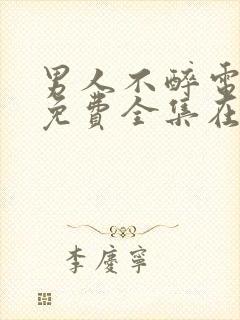 男人不醉電
免費全集在
李慶寧